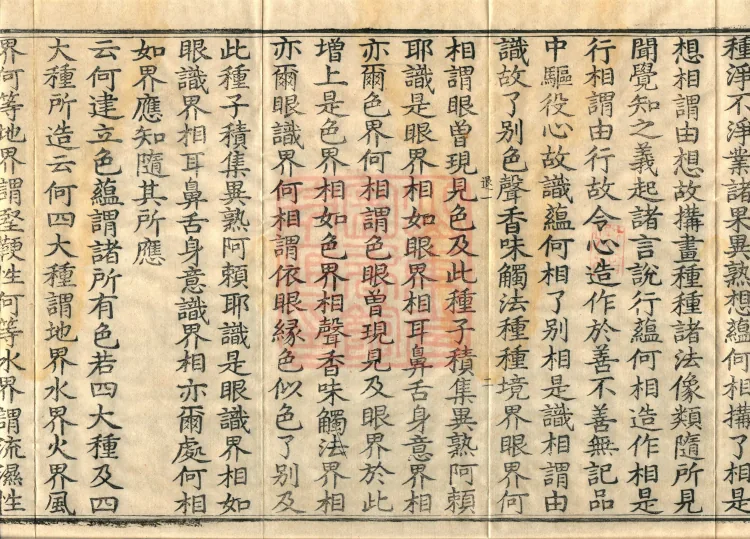 種淨不淨業諸果異熟想蘊何相搆了相是
想相謂由想故搆畫種種諸法像類隨所見
聞覺知之義起諸言說行蘊何相造作相是
行相謂由行故令心造作於善不善無記品
中驅役心故識蘊何相了別相是識相謂由
識故了別色聲香味觸法種種境界眼界何
相謂眼曾現見色及此種子積集異熟阿賴
耶識是眼界相如眼界相耳鼻舌身意界相
亦爾色界何相謂色眼曾現見及眼界於此
增上是色界相如色界相聲香味觸法界相
亦爾眼識界何相謂依眼緣色似色了別及
此種子積集異熟阿賴耶識是眼識界相如
眼識界相耳鼻舌身意識界相亦爾處何相
如界應知隨其所應
云何建立色蘊謂諸所有色若四大種及四
大種所造云何四大種謂地界水界火界風
界何等地界謂堅鞕性何等水界謂流濕性